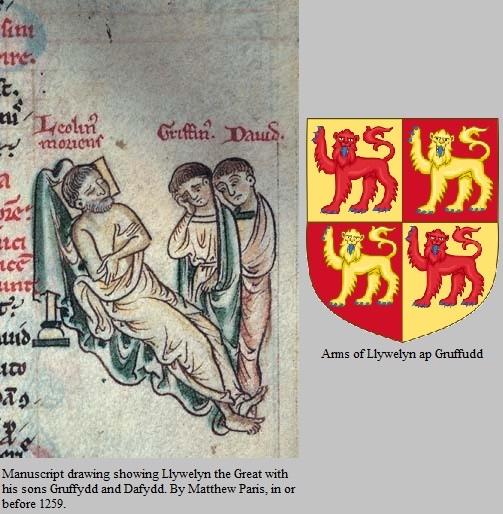 Leolin'
moriens
Griffin'. David.
Arms of Llywelyn ap Gruffudd
Manuscript drawing showing Llywelyn the Great with
his sons Gruffydd and Dafydd. By Matthew Paris, in or
before 1259.